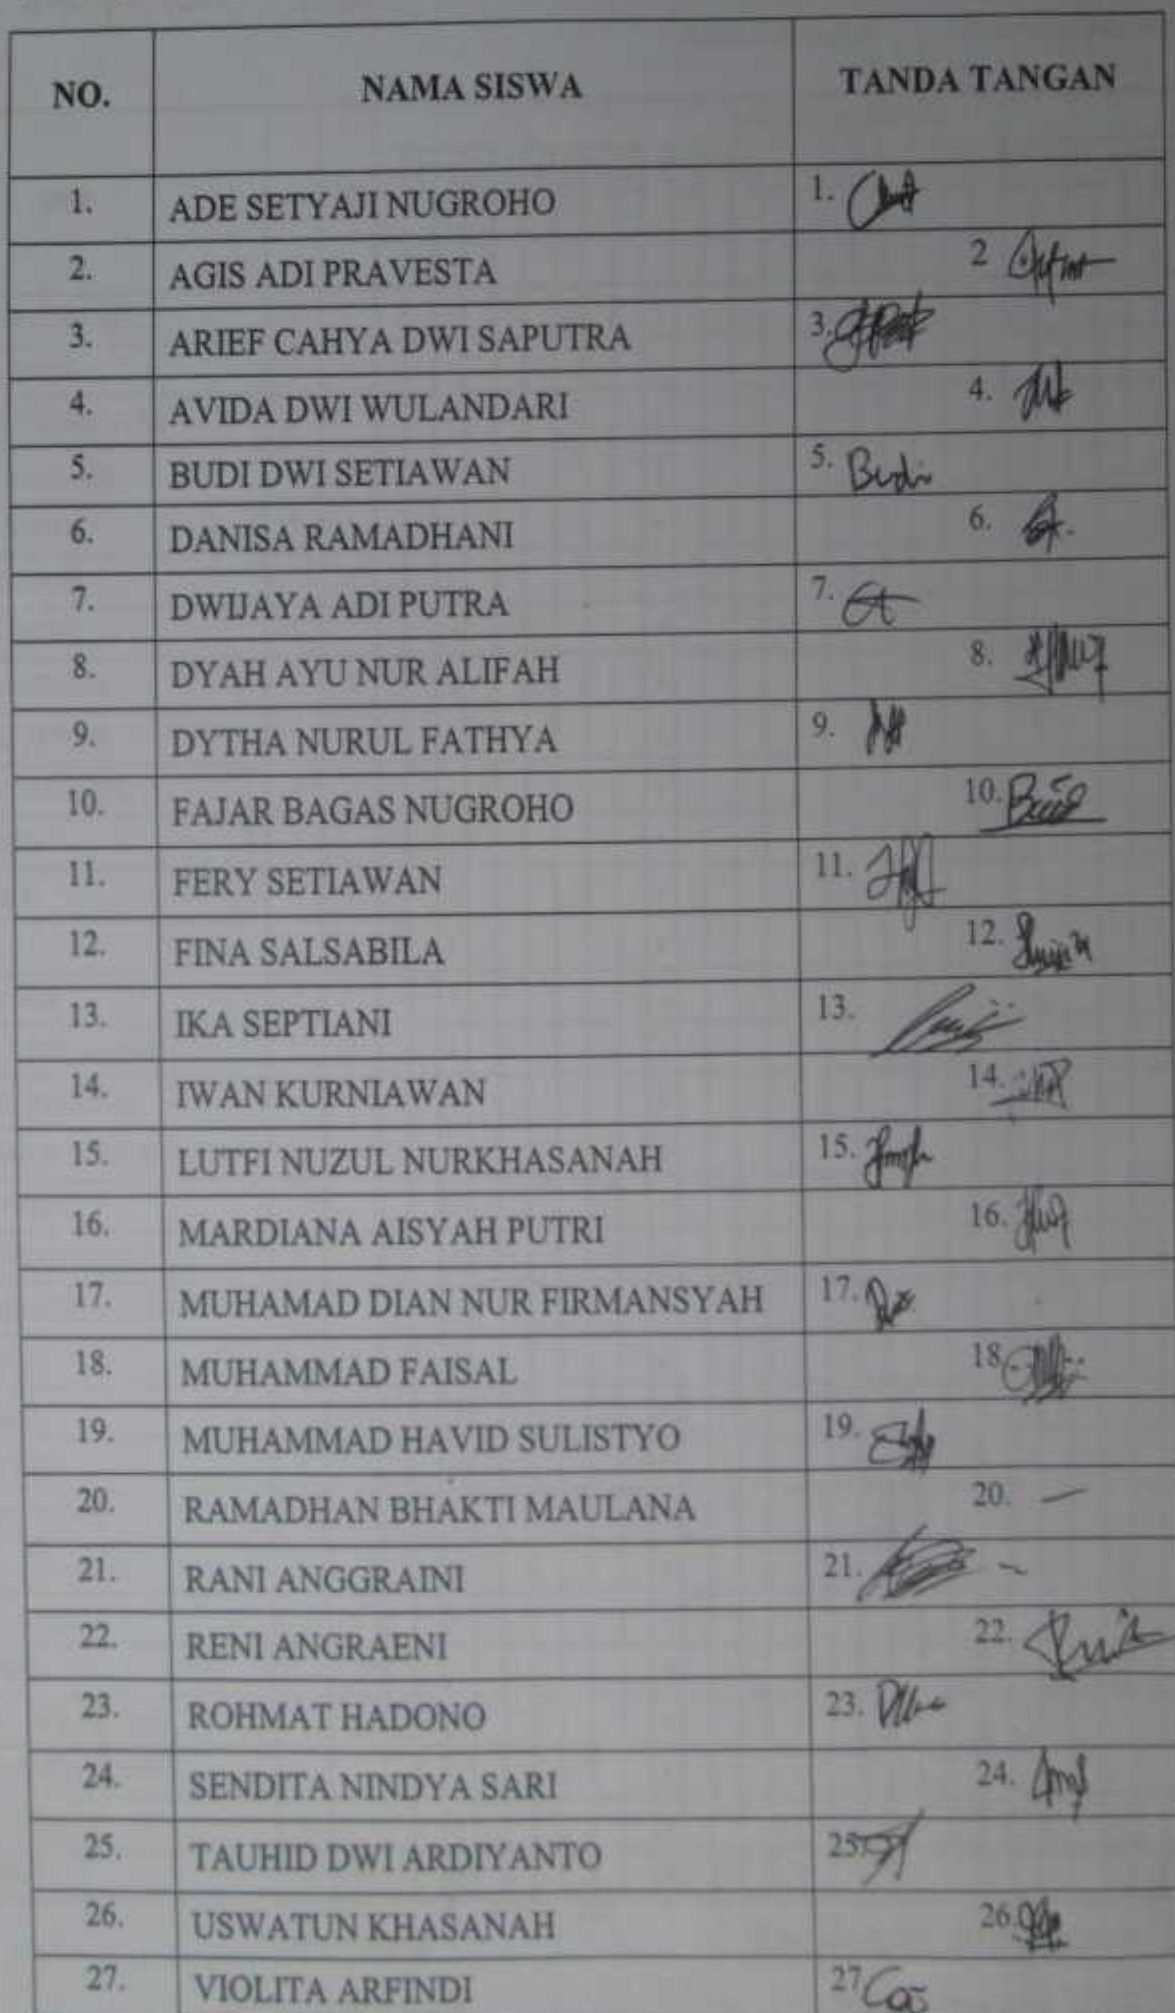 NO. NAMA SISWA TANDA TANGAN
1. ADE SETYAJI NUGROHO 1.
2. AGIS ADI PRAVESTA 2
3. ARIEF CAHYA DWI SAPUTRA 3.
4. AVIDA DWI WULANDARI 4.
5. BUDI DWI SETIAWAN 5. Budi
6. DANISA RAMADHANI 6.
7. DWIJAYA ADI PUTRA 7.
8. DYAH AYU NUR ALIFAH 8.
9. DYTHA NURUL FATHYA 9.
10. FAJAR BAGAS NUGROHO 10.
11. FERY SETIAWAN 11.
12. FINA SALSABILA 12.
13. IKA SEPTIANI 13.
14. IWAN KURNIAWAN 14.
15. LUTFI NUZUL NURKHASANAH 15.
16. MARDIANA AISYAH PUTRI 16.
17. MUHAMAD DIAN NUR FIRMANSYAH 17.
18. MUHAMMAD FAISAL 18
19. MUHAMMAD HAVID SULISTYO 19.
20. RAMADHAN BHAKTI MAULANA 20. —
21. RANI ANGGRAINI 21.
22. RENI ANGRAENI 22.
23. ROHMAT HADONO 23.
24. SENDITA NINDYA SARI 24.
25. TAUHID DWI ARDIYANTO 25
26. USWATUN KHASANAH 26.
27. VIOLITA ARFINDI 27